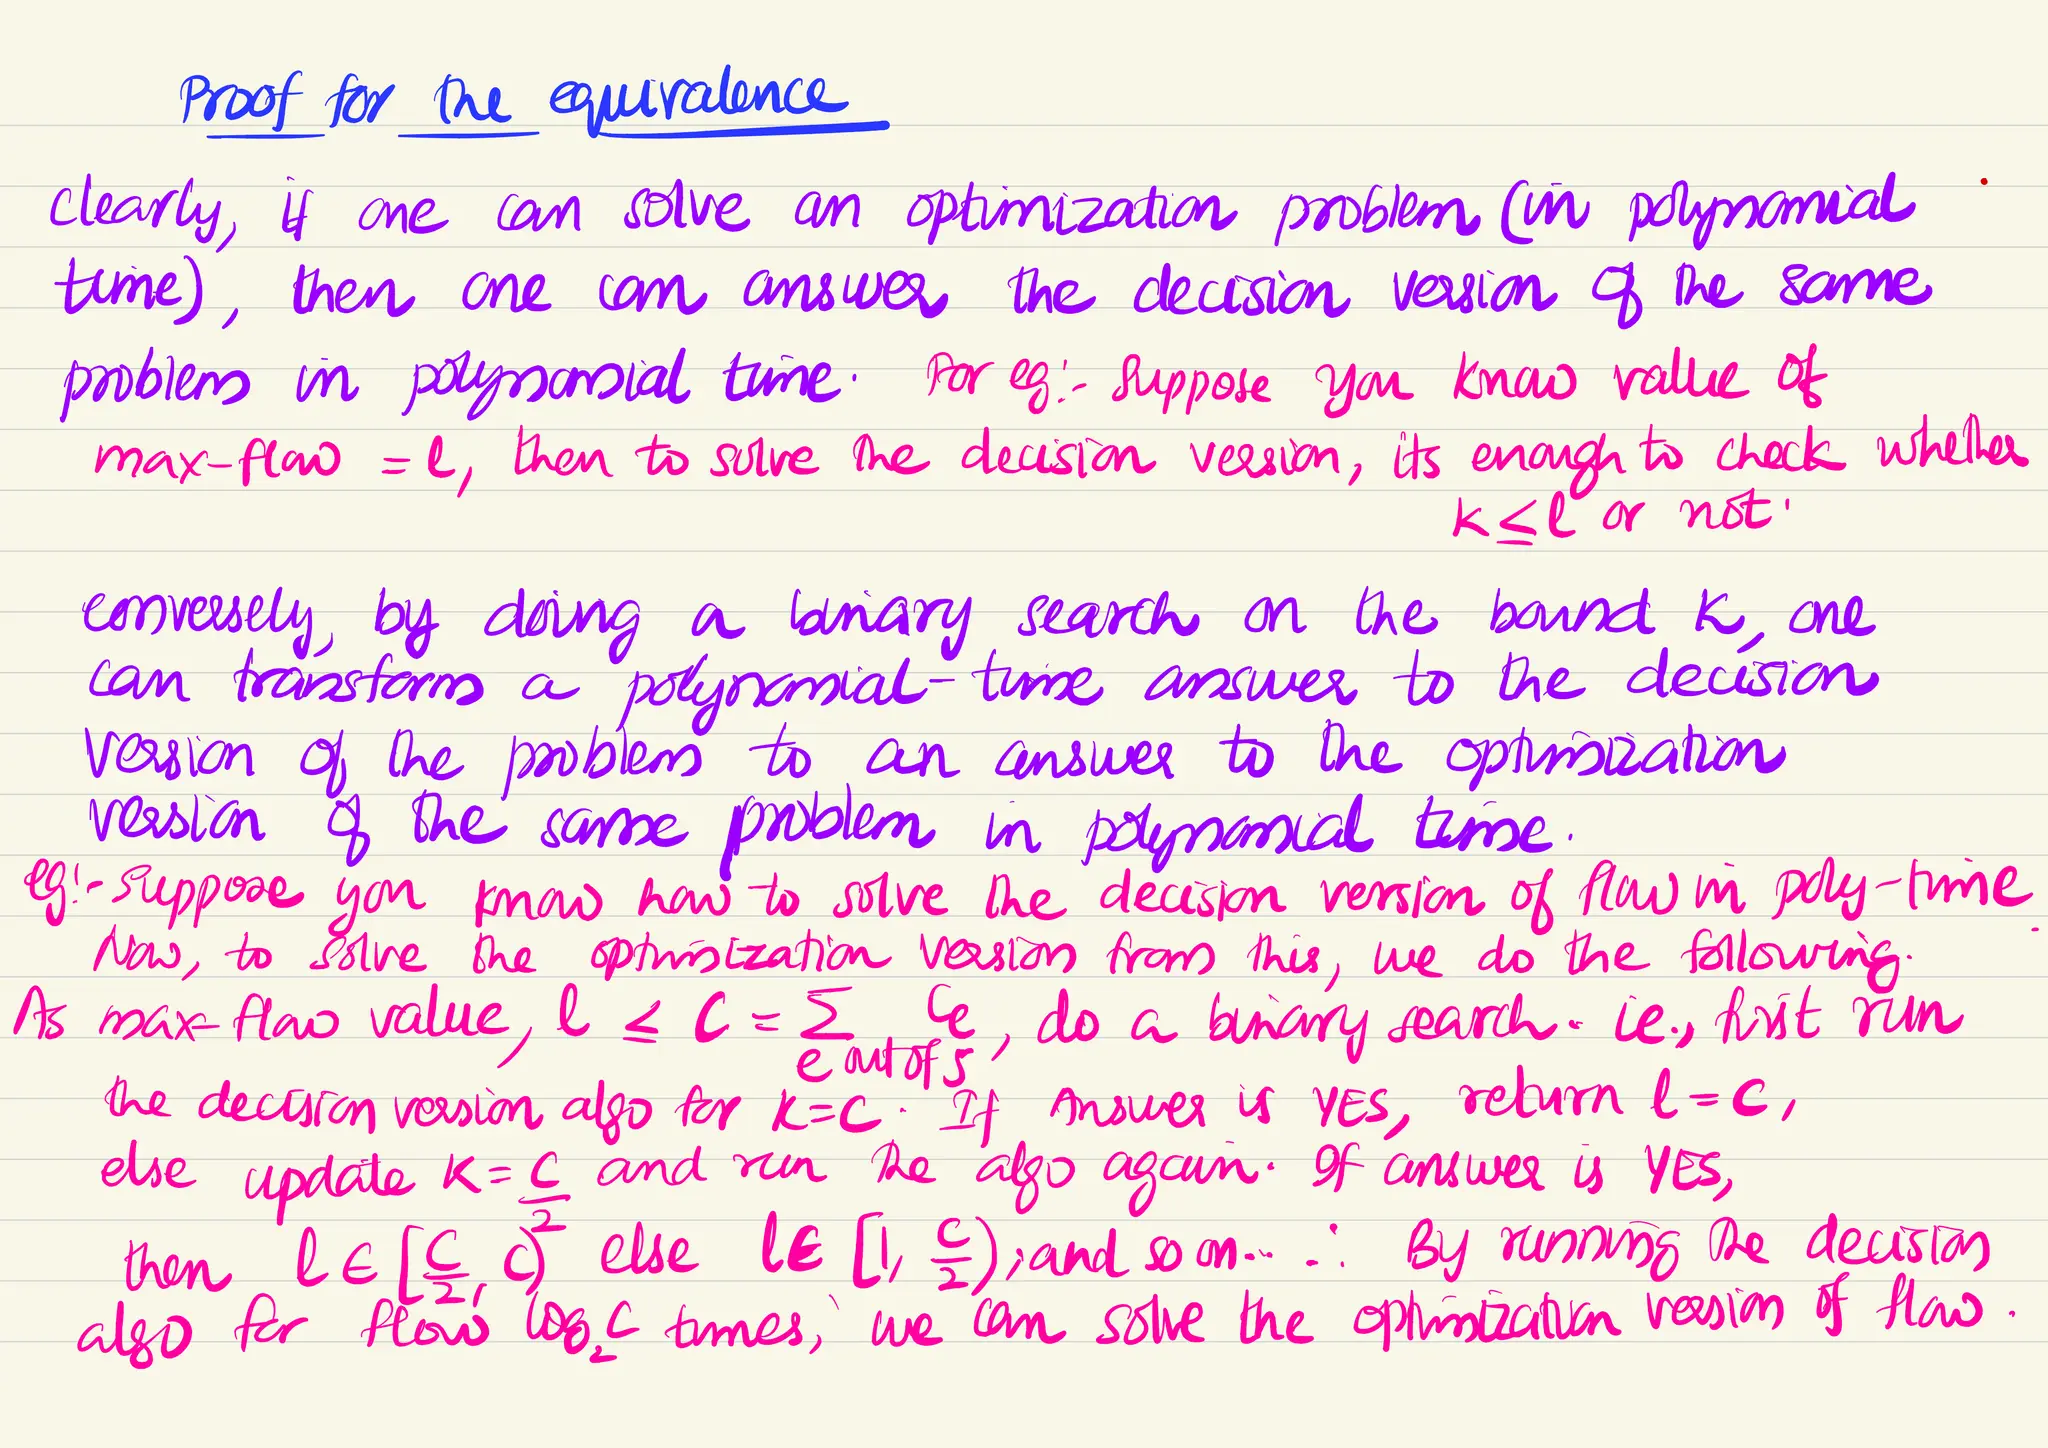 Proof for the equivalence
Clearly, if one can solve an optimization problem (in polynomial
time), then one can answer the decision version of the same
problem in polynomial time. For eg:- Suppose you know value of
max-flow = l, then to solve the decision version, its enough to check whether
k ≤ l or not.
Conversely, by doing a binary search on the bound k, one
can transform a polynomial-time answer to the decision
version of the problem to an answer to the optimization
version of the same problem in polynomial time.
eg:- Suppose you know how to solve the decision version of flow in poly-time.
Now, to solve the optimization version from this, we do the following.
As max-flow value, l ≤ C = Σ_{e out of s} C_e, do a binary search. i.e., first run
the decision version algo for k=C. If Answer is YES, return l=C,
else update k = C/2 and run the algo again. If answer is YES,
then l ∈ [C/2, C) else l ∈ [1, C/2), and so on... ∴ By running the decision
algo for flow log₂C times, we can solve the optimization version of flow.